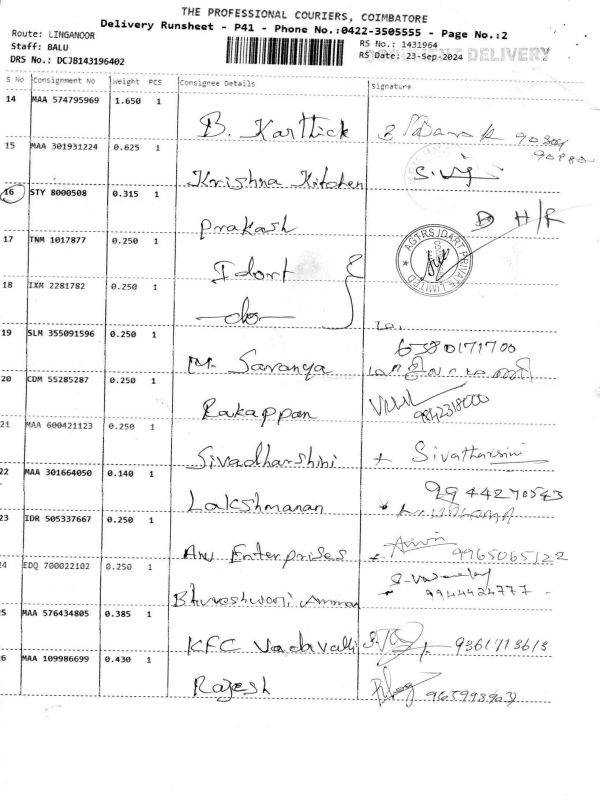 THE PROFESSIONAL COURIERS, COIMBATORE
Delivery Runsheet - P41 - Phone No.:0422-3505555 - Page No.:2
Route: LINGANOOR
Staff: BALU
DRS No.: DCJB143196402
RS No.: 1431964
RS Date: 23-Sep-2024
DELIVERY
S No Consignment No Weight PCS Consignee Details Signature
14 MAA 574795969 1.650 1 B. Karthick
15 MAA 301931224 0.625 1 Krishna Kitchen
16 STY 8000508 0.315 1 Prakash H/R
17 TNM 1017877 0.250 1 Idort
AGTRSJDART PRIVATE LIMITED
18 IXM 2281782 0.250 1 -do-
19 SLM 355091596 0.250 1 M. Saranya
20 CDM 55285287 0.250 1 Rakappan 9842318000
21 MAA 600421123 0.250 1 Sivadharshini Sivatharsini
22 MAA 301664050 0.140 1 Lakshmanan 9944270543
23 IDR 505337667 0.250 1 Anu Enterprises 9965065122
24 EDQ 700022102 0.250 1 Bhuvashwari Amman 9944424777
25 MAA 576434805 0.385 1 KFC Vadavalli 9361713613
26 MAA 109986699 0.430 1 Rajesh